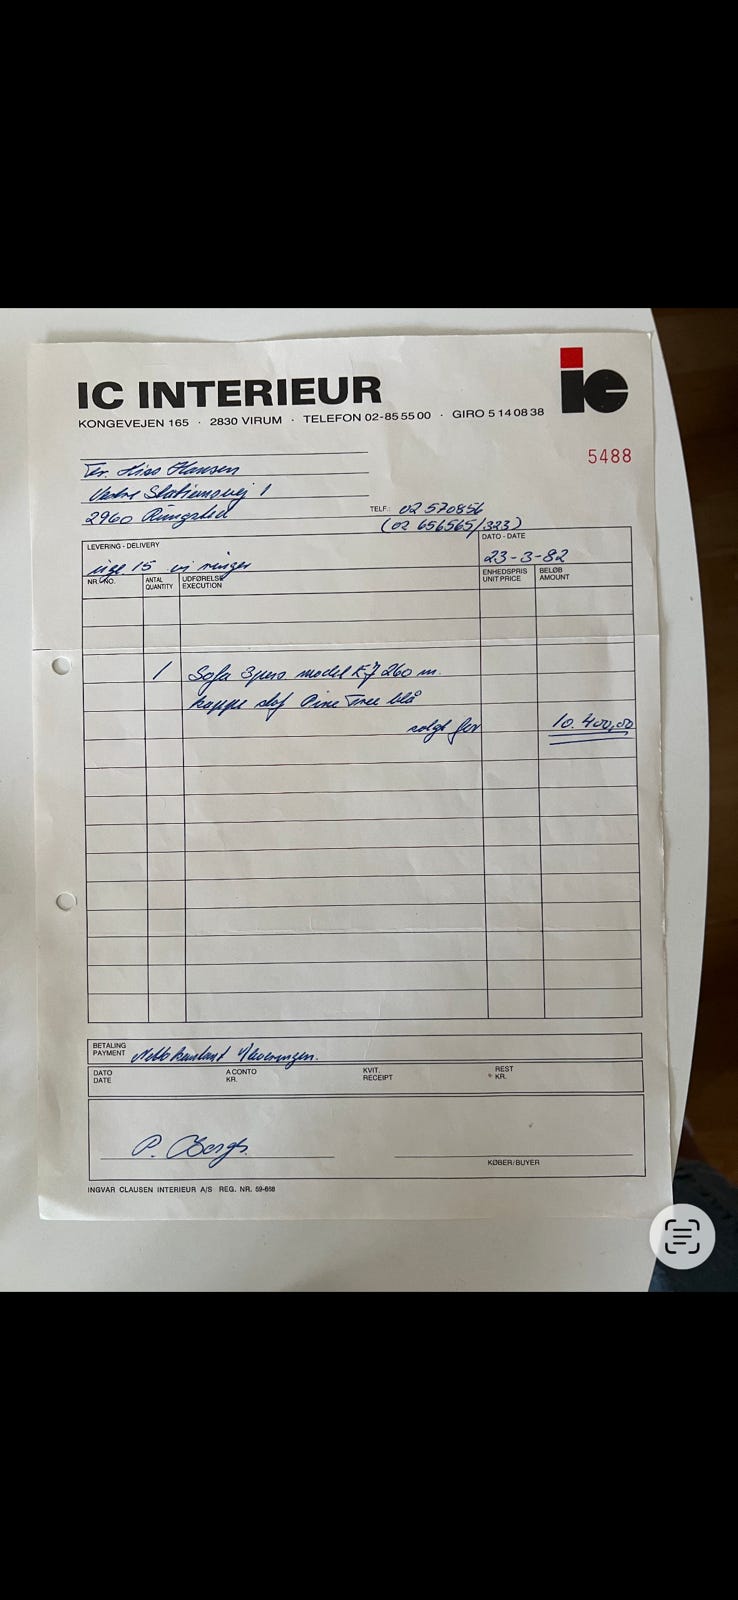 IC INTERIEUR
KONGEVEJEN 165 · 2830 VIRUM · TELEFON 02-85 55 00 · GIRO 5 14 08 38
ic
5488
Fr. Hansen
Vestre Stationsvej 1
2960 Rungsted
TELF.: 02 570856
(02 656565/323)
LEVERING - DELIVERY
DATO - DATE
uge 15 vi ringer
23-3-82
NR./NO.
ANTAL QUANTITY
UDFØRELSE EXECUTION
ENHEDSPRIS UNIT PRICE
BELØB AMOUNT
1 Sofa 3pers model 260 m.
kappe stof Pine Tree blå
solgt for 10.400,00
BETALING PAYMENT Netto kontant v/leveringen.
DATO DATE
A CONTO KR.
KVIT. RECEIPT
REST KR.
P.
KØBER/BUYER
INGVAR CLAUSEN INTERIEUR A/S REG. NR. 59-658